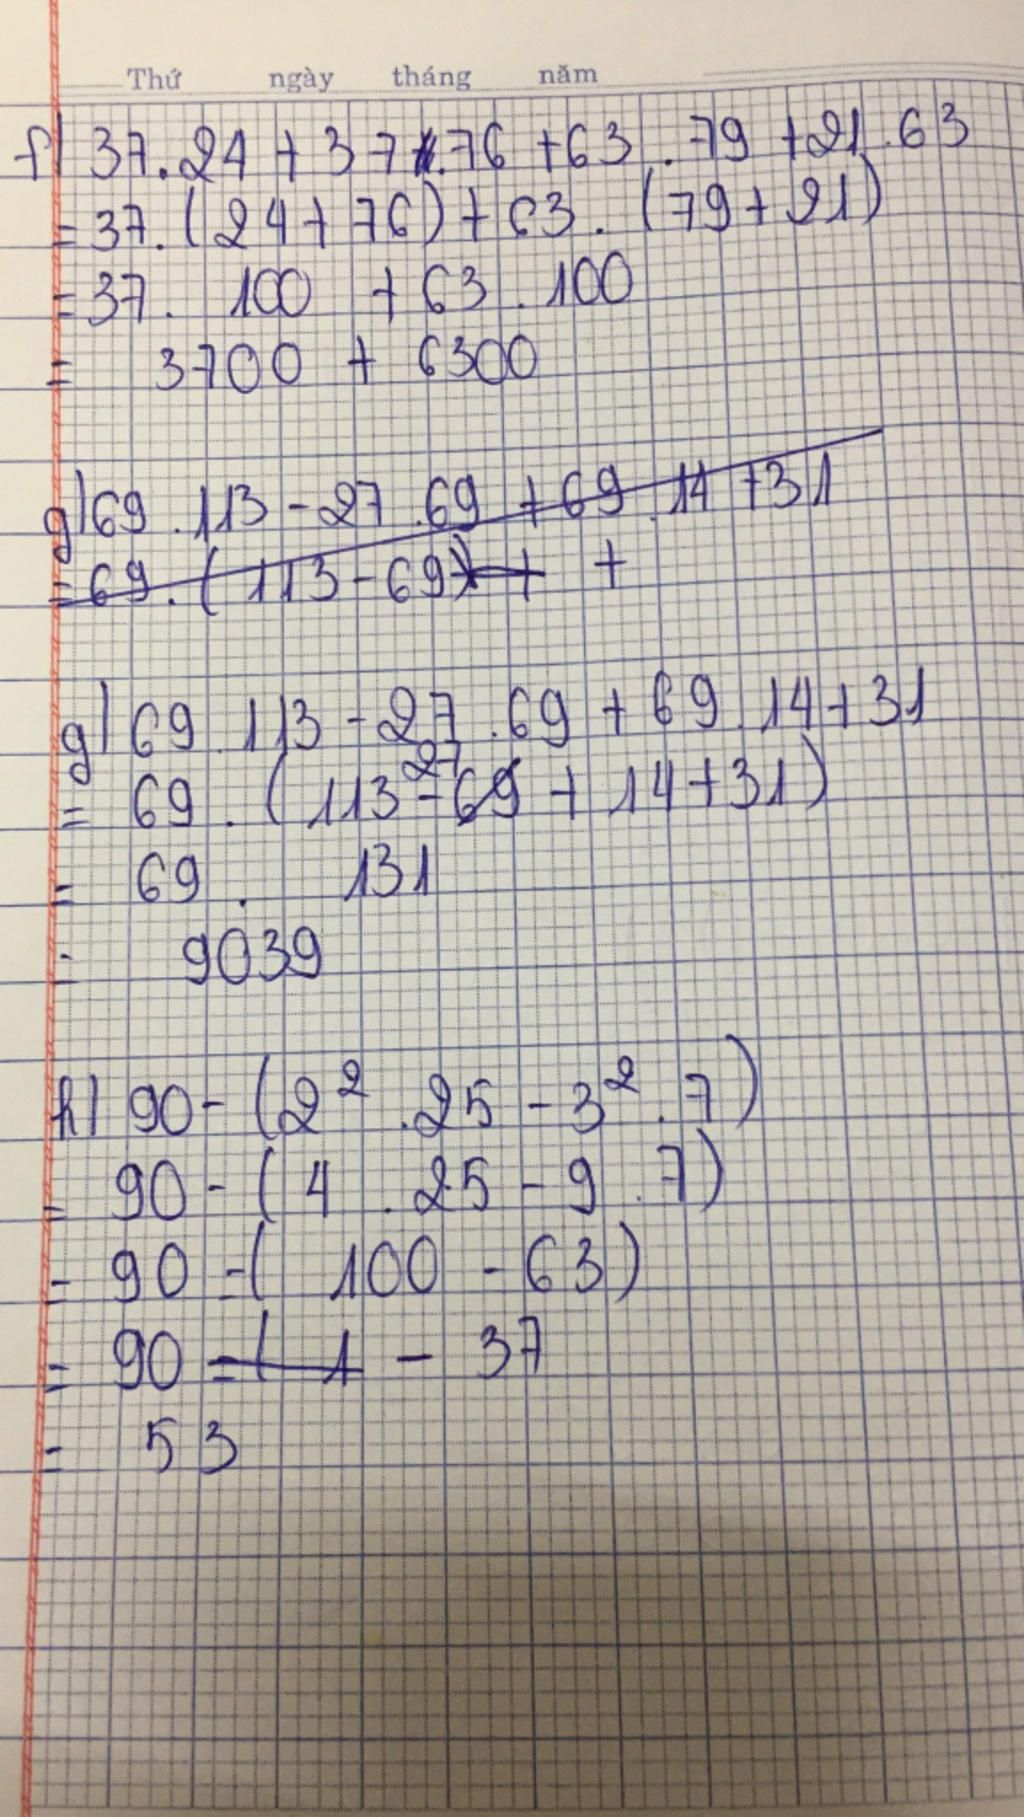 Thứ ngày tháng năm
f) 37.24 + 37.76 + 63.79 + 21.63
= 37.(24 + 76) + 63.(79 + 21)
= 37. 100 + 63.100
= 3700 + 6300
g) 69.113 - 27.69 + 69.14 + 31
= 69.(113 - 69) + +
g) 69.113 - 27.69 + 69.14 + 31
27
= 69.(113 - 69 + 14 + 31)
= 69. 131
= 9039
h) 90 - (2² .25 - 3² .7)
= 90 - (4 .25 - 9.7)
= 90 - ( 100 - 63)
= 90 - ( 1 - 37
= 53